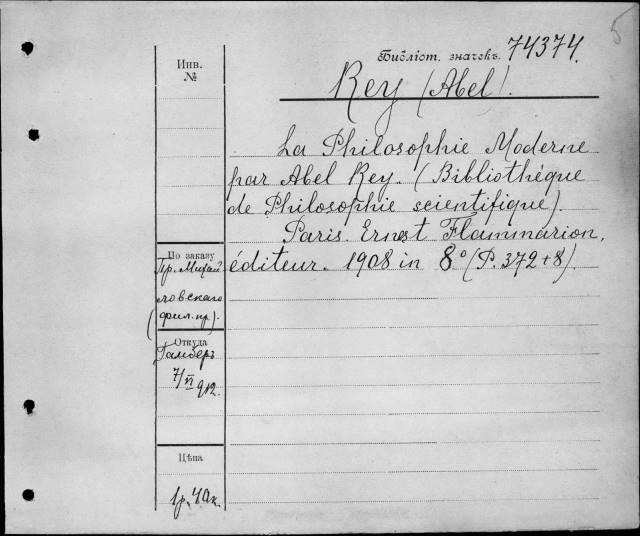 5
Библіот. значекъ 74374.
Rey (Abel).
Инв.
№
La Philosophie Moderne
par Abel Rey. (Bibliothéque
de Philosophie scientifique).
Paris. Ernest Flammarion,
éditeur. 1908 in 8º (P. 372+8).
По заказу
Пр. Михай
ловскаго
(фил. пр).
Откуда
Гамберъ
7/VI 912.
Цѣна
1р. 40к.